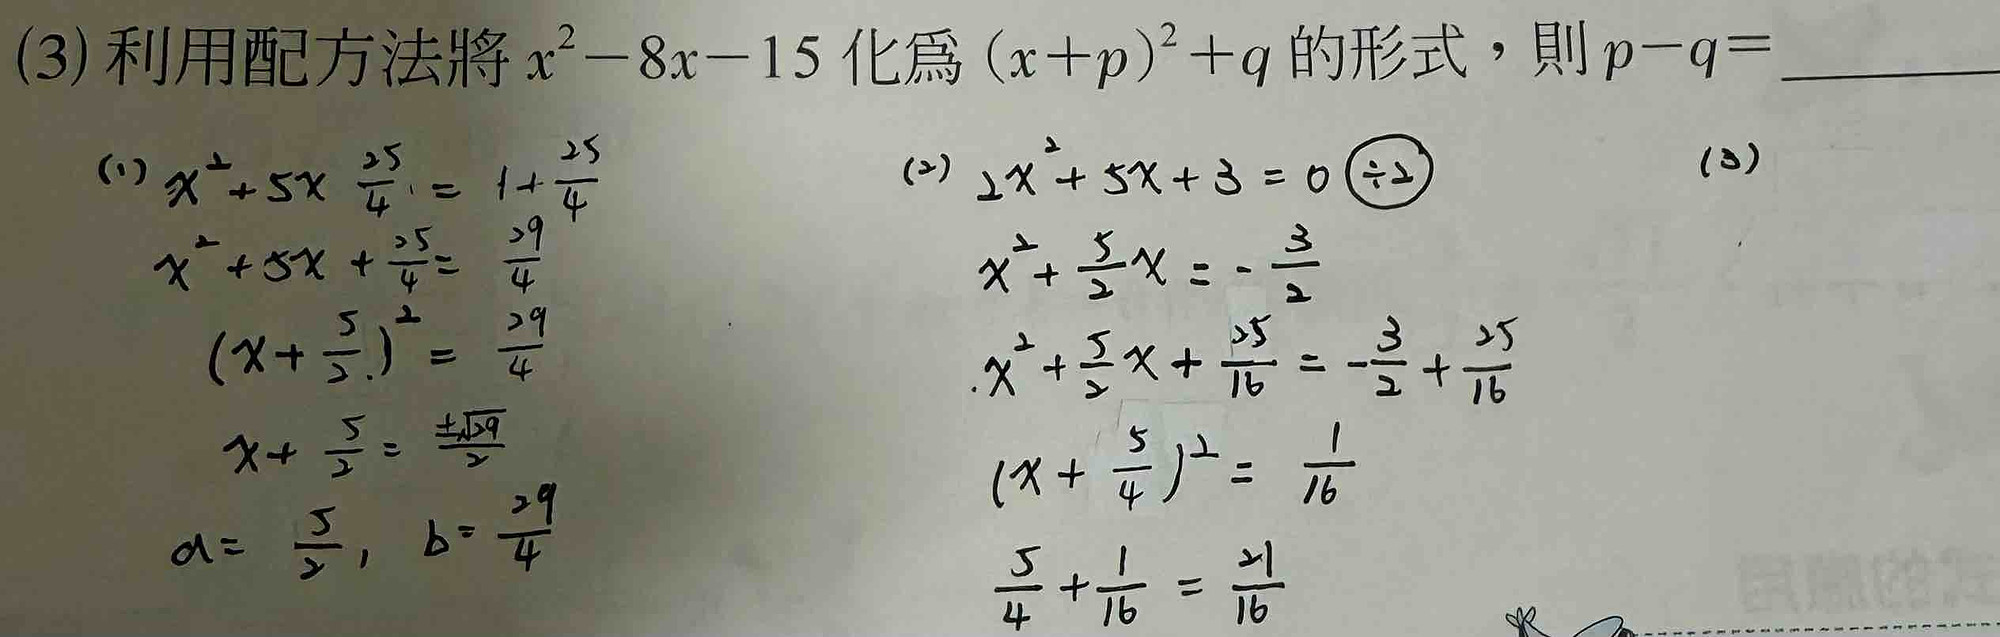 (3) 利用配方法將 x²−8x−15 化為 (x+p)²+q 的形式，則 p−q=______
(1) x²+5x 25/4 = 1+25/4
x²+5x+25/4=29/4
(x+5/2)²=29/4
x+5/2=±√29/2
a=5/2, b=29/4
(2) 2x²+5x+3=0 ÷2
x²+5/2x=-3/2
x²+5/2x+25/16=-3/2+25/16
(x+5/4)²=1/16
5/4+1/16=21/16
(3)